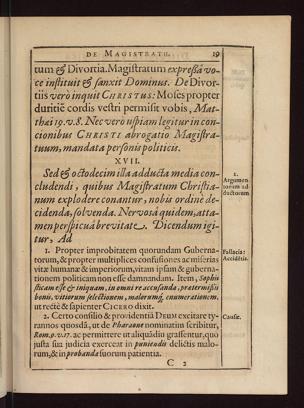 DE MAGISTRATU. 19
tum & Divortia. Magistratum expressâ vo-
ce instituit & sanxit Dominus. De Divor-
tiis verò inquit CHRISTUS: Moses propter
duritiẽ cordis vestri permisit vobis, Mat-
thæi 19. v. 8. Nec verò uspiam legitur in con-
cionibus CHRISTI abrogatio Magistra-
tuum, mandata personis politicis.
XVII.
Sed & octodecim illa adducta media con-
cludendi, quibus Magistratum Christia-
num explodere conantur, nobis ordine de-
cidenda, solvenda. Nervosâ quidem, atta-
men perspicuâ brevitate. Dicendum igi-
tur, Ad
1. Propter improbitatem quorundam Guberna-
torum, & propter multiplices confusiones ac miserias
vitæ humanæ & imperiorum, vitam ipsam & guberna-
tionem politicam non esse damnandam. Item, Sophi-
sticam esse & iniquam, in omni re accusanda, prætermissis
bonis, vitiorum selectionem, malorumq; enumerationem.
ut rectè & sapienter CICERO dixit.
2. Certo consilio & providentiâ DEUM excitare ty-
rannos quosdã, ut de Pharaone nominatim scribitur,
Rom. 9. v. 17. ac permittere ut aliquãdiu grassentur, quo
justa sua judicia exerceat in puniendis delictis malo-
rum, & in probanda suorum patientia.
C 2
1.
Argumen-
torum ad-
ductorum
Fallacia:
Accidẽtis.
Causæ.